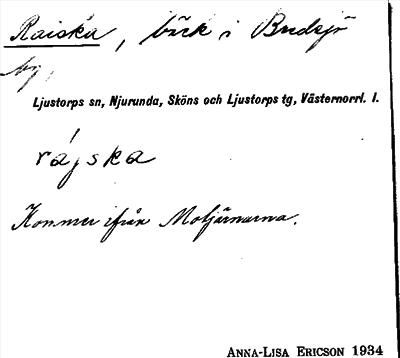 Raiska, bäck i Bredsjö
by,
Ljustorps sn, Njurunda, Sköns och Ljustorps tg, Västernorrl. l.
rájska
Kommer ifrån Motjärnarna.
ANNA-LISA ERICSON 1934